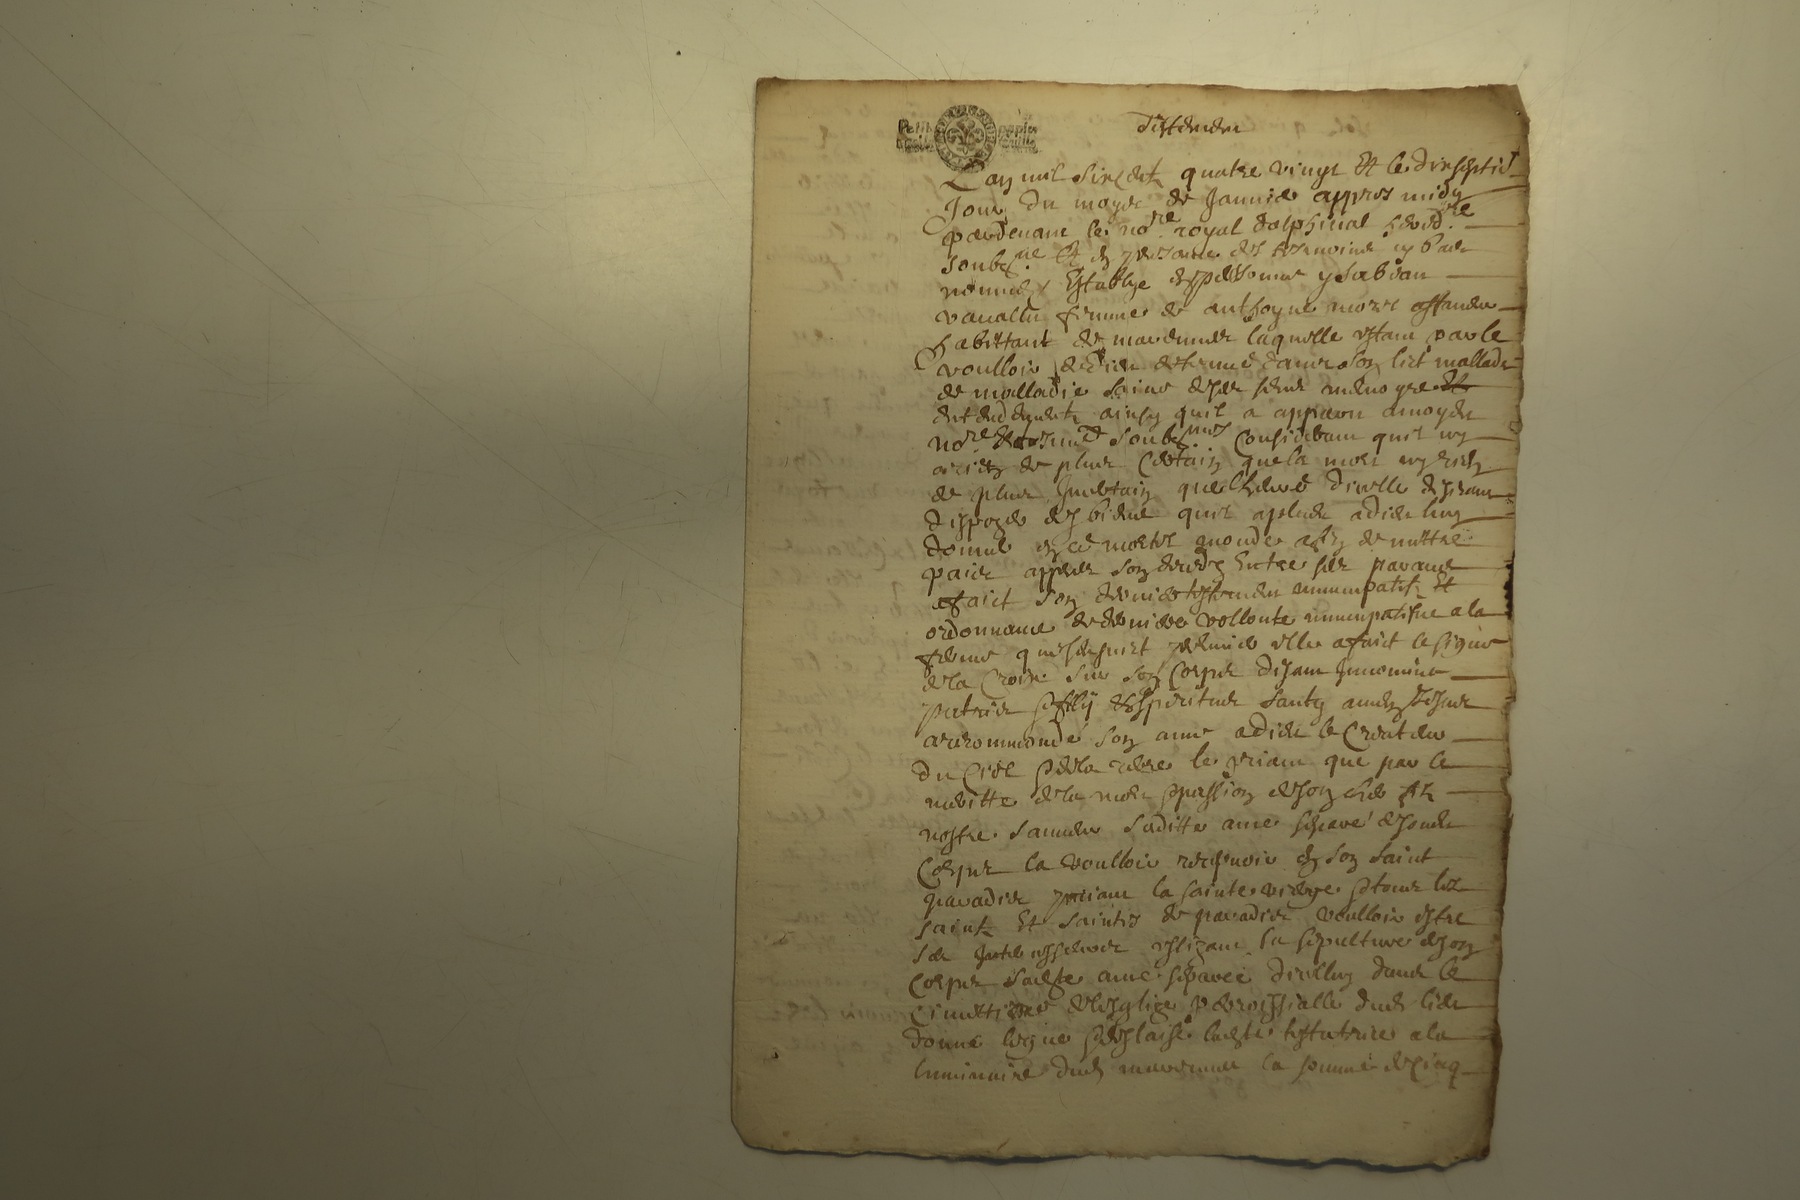 Petit papier
Testamen
Lan mil six cent quatre vingt et le dixseptie
Jour du moys de Janvier appres midy
pardevant le nore royal dalphinal heredre
soubne et en presance des tesmoins cy bas
nommes establye en personne ysabeau
femme de anthoyne
habittant de laquelle estant par le
voulloir de dieu detenue dans son lict mallade
de malladie saine de ses sens memoyre et
entendement ainsy quil a apparu a moydit
nore et tesmos soubnes considerant quil ny
a rien de plus certain que la mort ny rien
de plus incertain que lheure dicelle desirant
disposer des biens quil a pleu a dieu luy
donner en ce mortel monde afin de mettre
paix appres son deces entre ses parans
a faict son dernier testamen nuncupatif et
ordonnance de derniere vollonte nuncupatifve a la
forme que sensuict premier elle a faict le signe
de la Croix sur son Corps disant Innomine
patris et filly et spiritus santy amen
a recommande son ame a dieu le Createur
du Ciel et de la terre le priant que par le
meritte de la mort et passion de son cher filz
nostre sauveur saditte ame separé de son
Corps la voulloir recepvoir en son saint
paradis priant la sainte vierge et tous les
saintz et saintes de paradis voulloir estre
ses intercesseurs eslizant la sepulture de son
Corps sadte ame separée dicelluy dans le
cimettiere de lesglize parroissialle dud lieu
donne legue et delaisse ladte testatrice a la
luminaire dud la somme de cinq